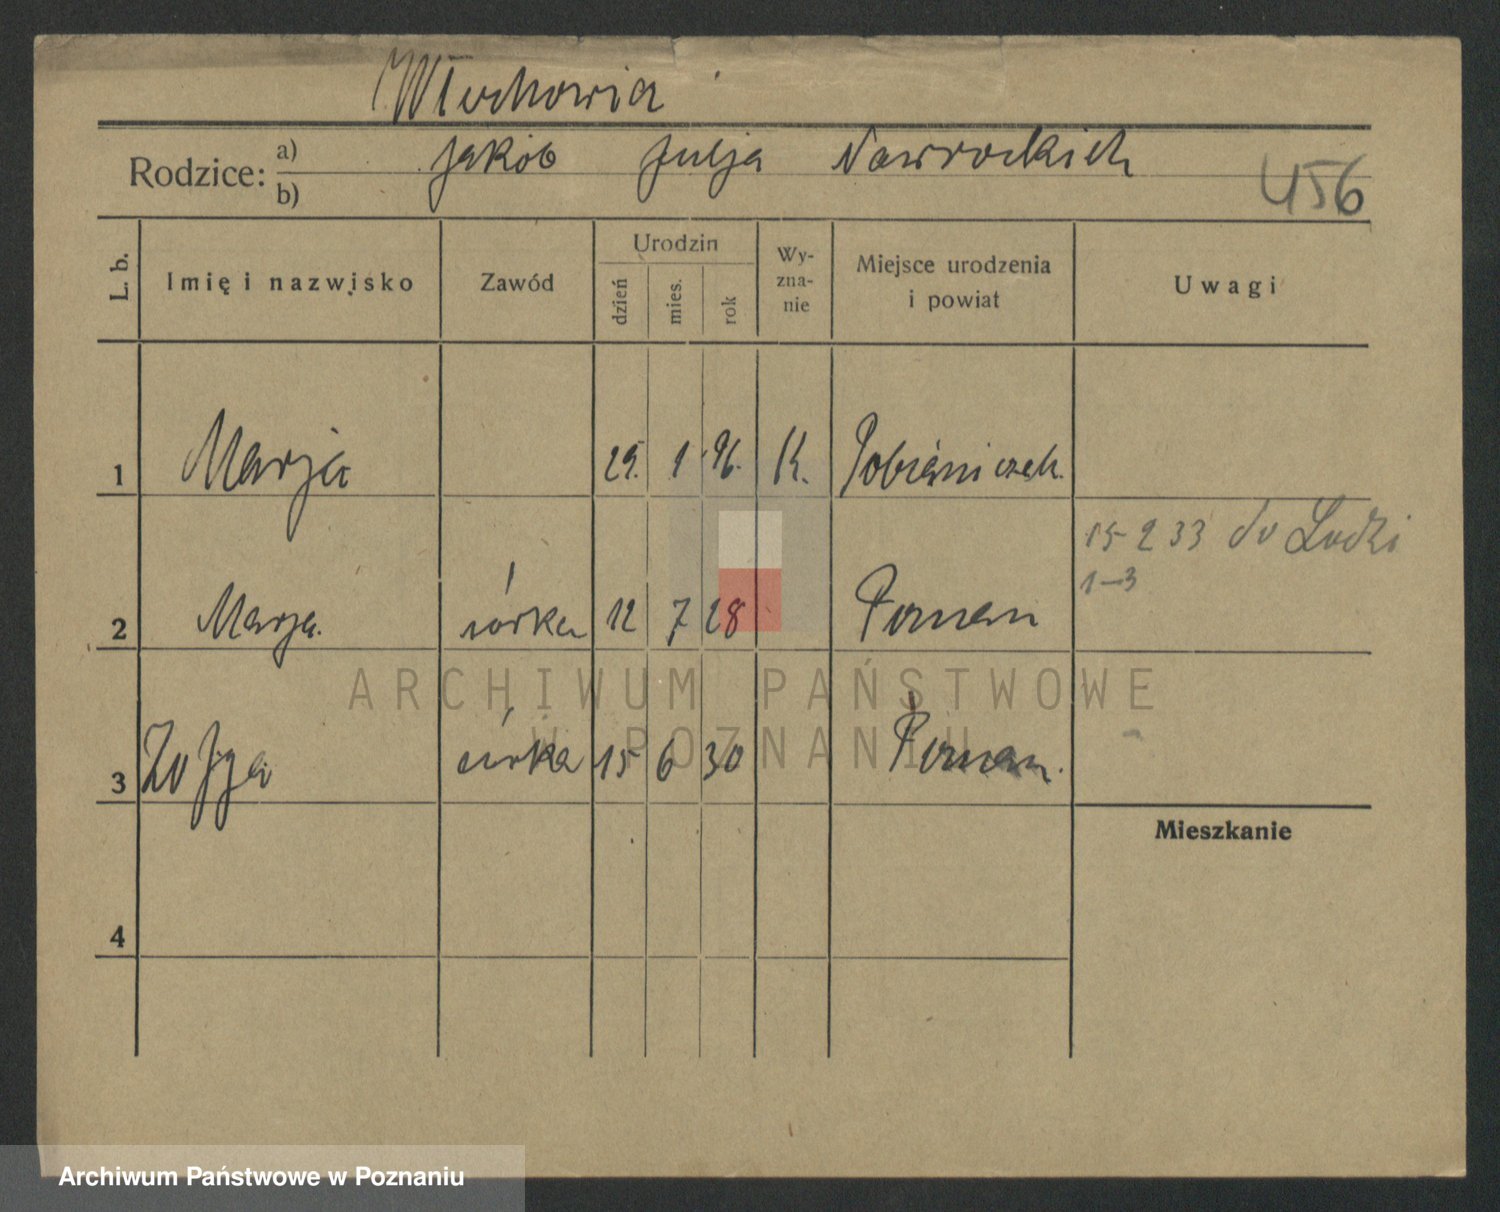 Włochowia
Rodzice: a) b) Jakób Julja Nawrockich
456
L. b.
Imię i nazwisko
Zawód
Urodzin
dzień
mies.
rok
Wy-
zna-
nie
Miejsce urodzenia
i powiat
Uwagi
1 Marja 29. 1 96. K.
15 2 33 do Lodzi
1-3
2 Marja. córka 12 7 28 Poznan
3 Zofja córka 15 6 30 Poznan.
Mieszkanie
4
ARCHIWUM PAŃSTWOWE
W POZNANIU
Archiwum Państwowe w Poznaniu